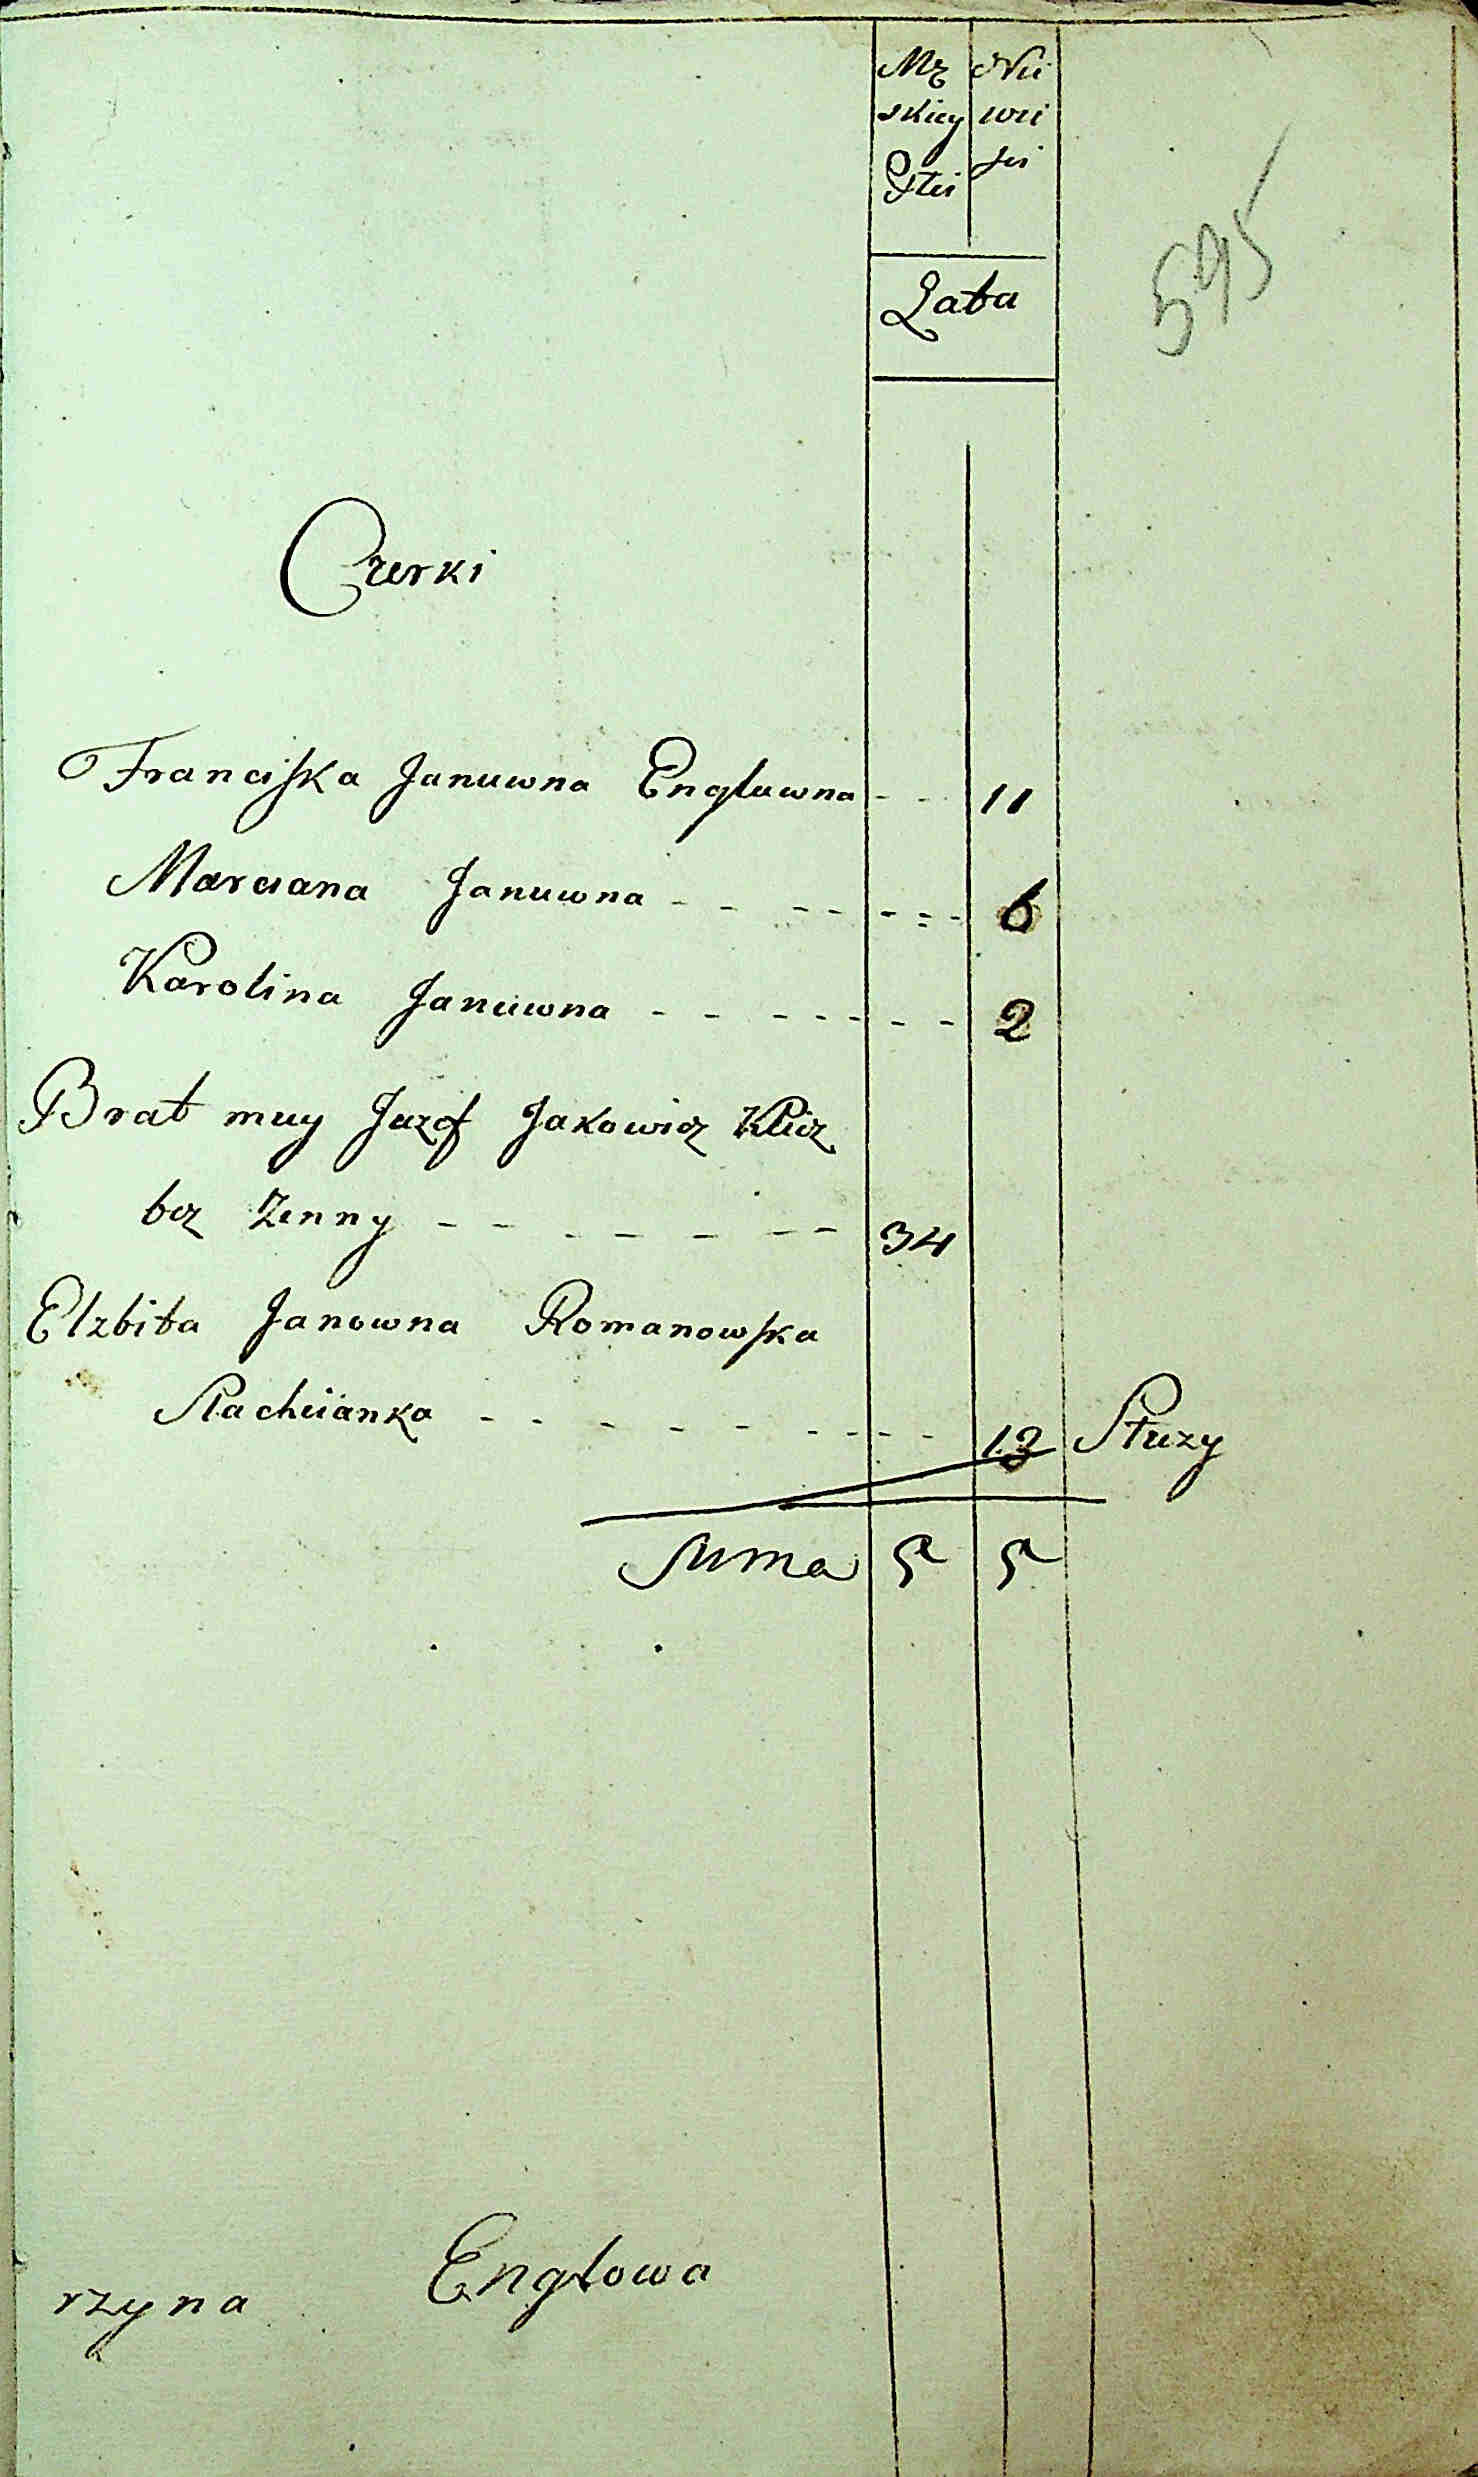 Mę Nie
skiey wie
Płci sci
Lata
595
Czerki
Franciſka Januwna Engluwna - - 11
Marciana Januwna - - - - - - - 6
Karolina Januwna - - - - - - - - 2
Brat muy Juzef Jakowicz
bez Zenny - - - - - - - 34
Elzbita Janowna Romanowſka
Slachcianka - - - - - - - - - 13 Służy
Suma 5 5
rzyna Englowa